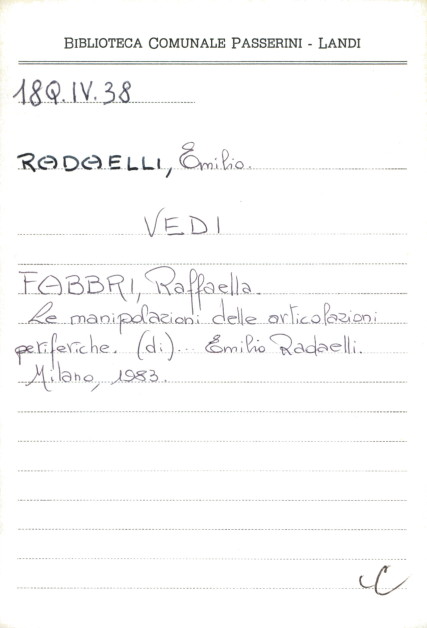 BIBLIOTECA COMUNALE PASSERINI - LANDI
18Q.IV.38
RADAELLI, Emilio.
VEDI
FABBRI, Raffaella.
Le manipolazioni delle articolazioni
periferiche. (di)... Emilio Radaelli.
Milano, 1983.